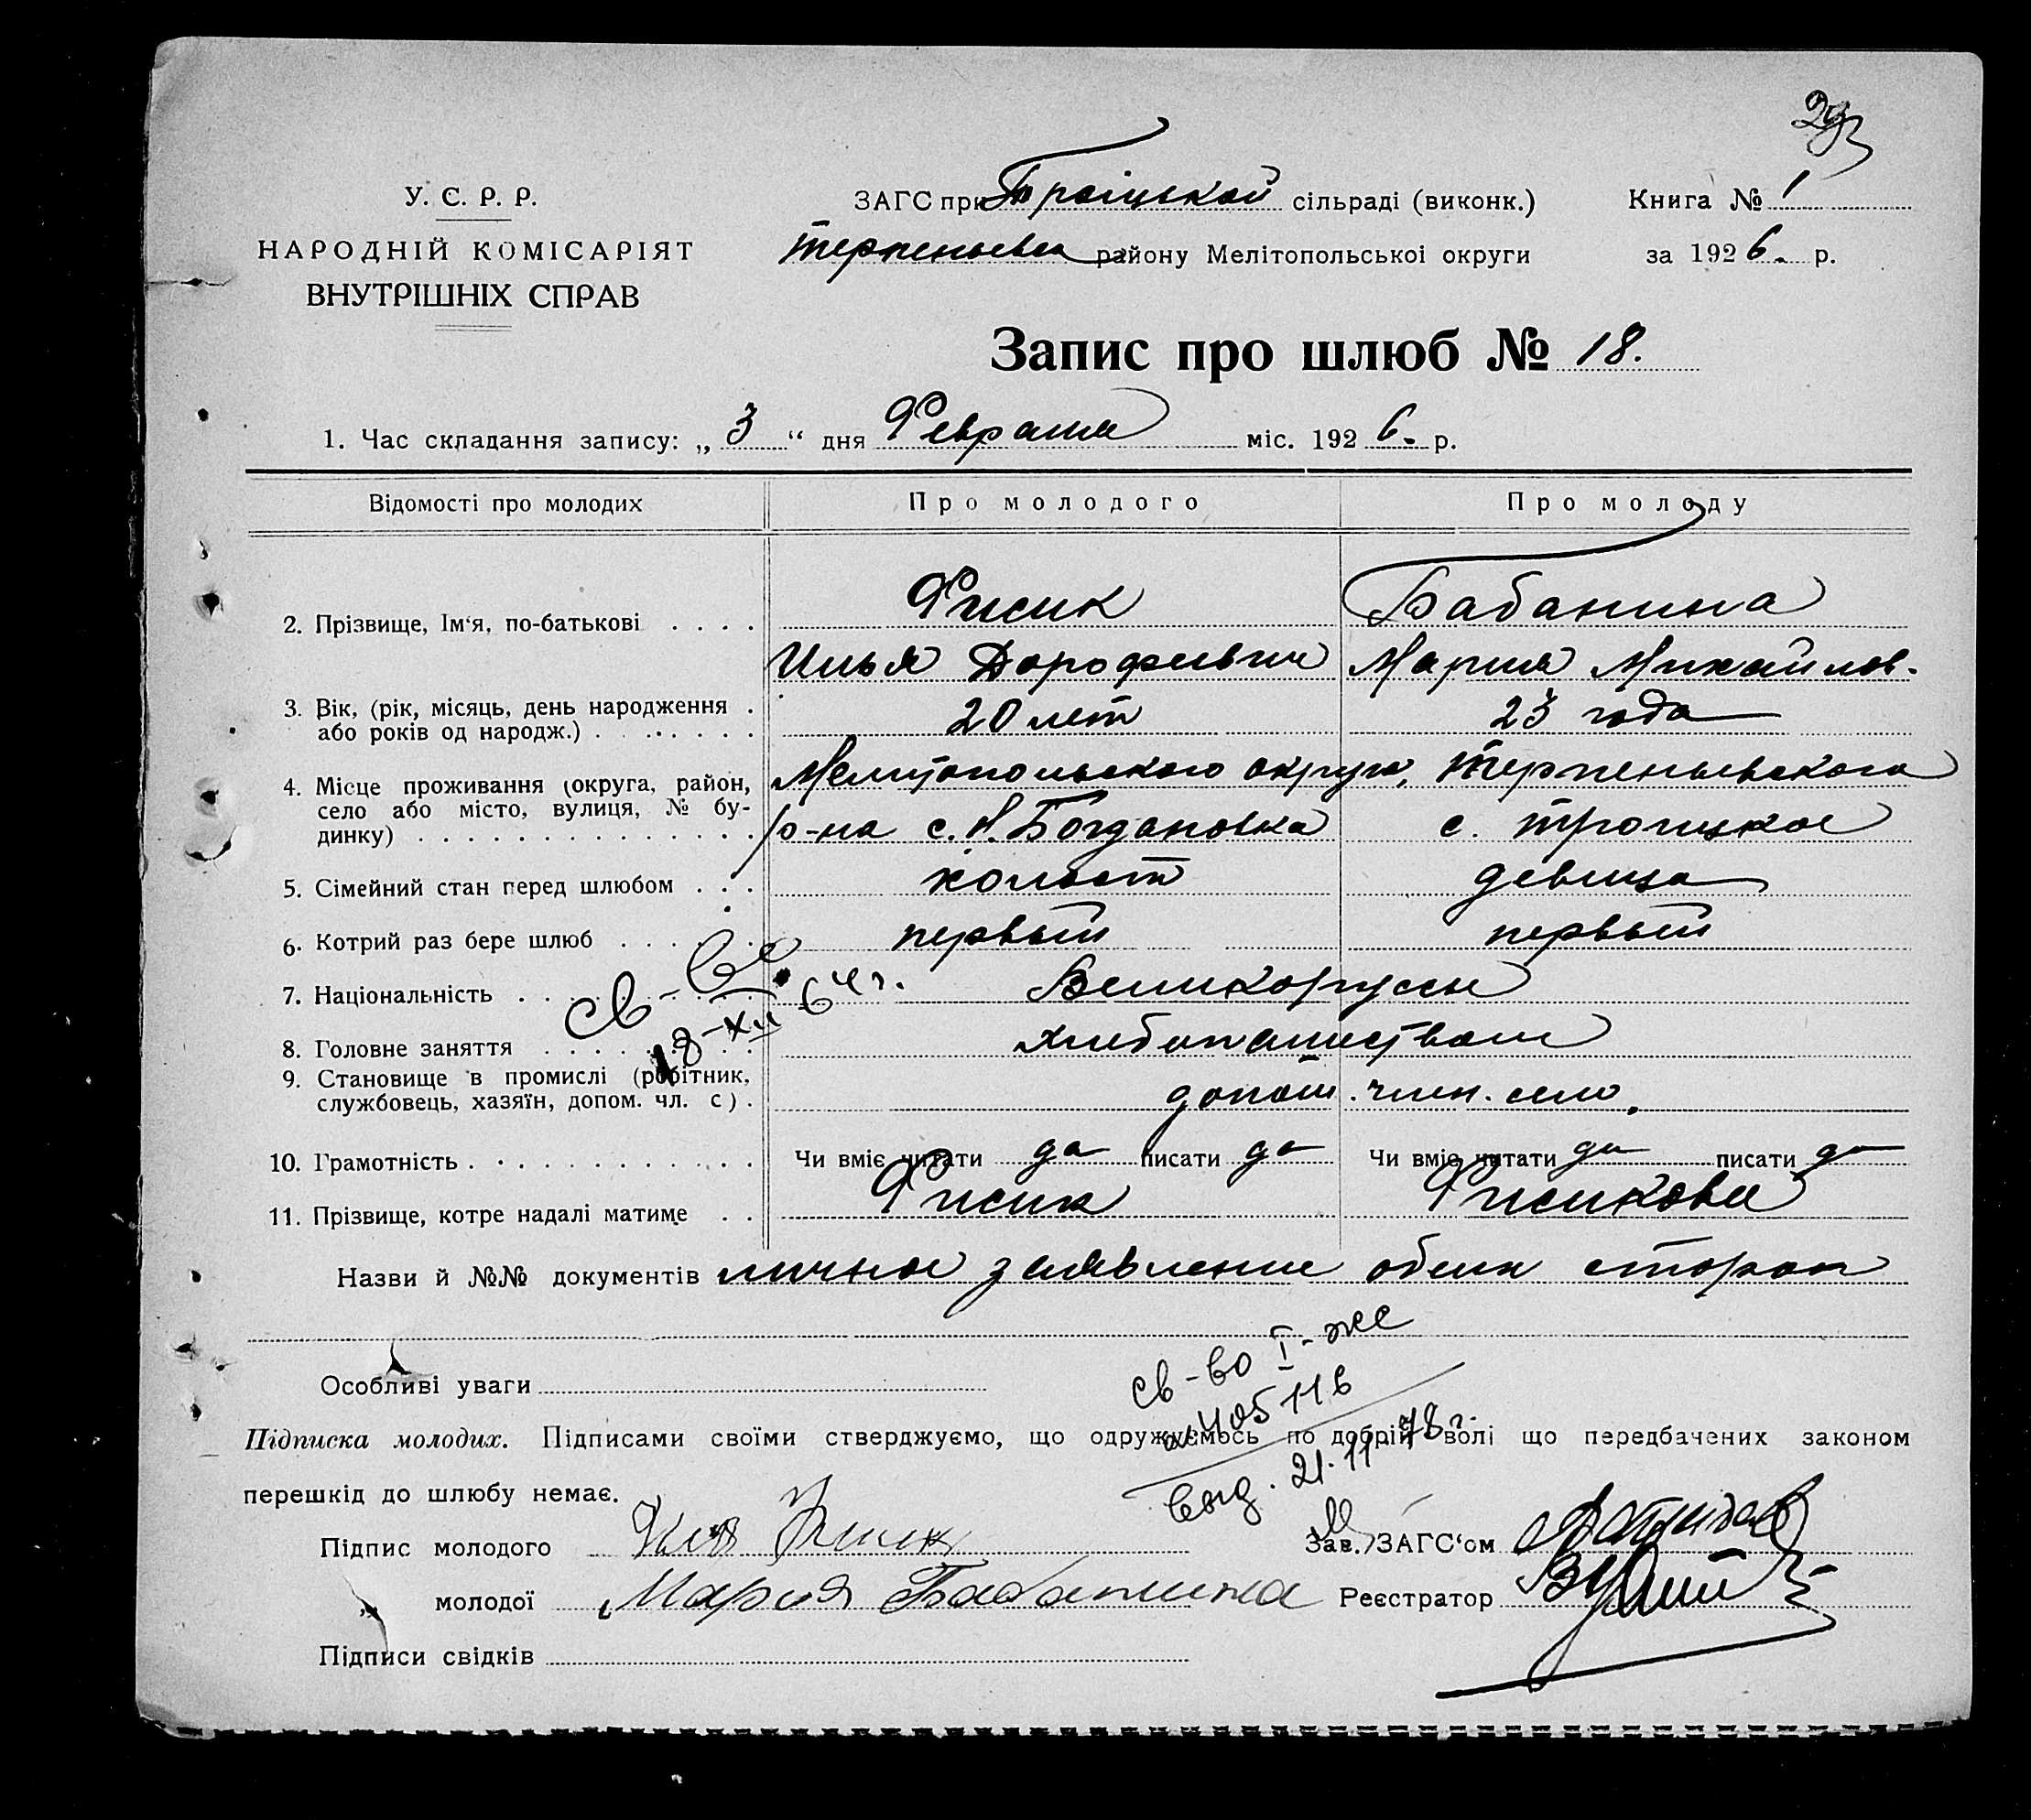 29
У. С. Р. Р.
НАРОДНІЙ КОМІСАРІЯТ
ВНУТРІШНІХ СПРАВ
ЗАГС при Троіцькой сільраді (виконк.)
Терпеньевск району Мелітопольськоі округи
Книга № 1
за 1926. р.
Запис про шлюб № 18.
1. Час складання запису: „3“ дня Февраля міс. 1926. р.
Відомості про молодих
Про молодого
Про молоду
2. Прізвище, Ім‘я, по-батькові . . . .
Фисик
Бабанина
Илья Дорофеевич
Мария Михайлов.
3. Вік, (рік, місяць, день народження .
або років од народж.) . . . . . . .
20 лет
23 года
4. Місце проживання (округа, район,
село або місто, вулиця, № бу-
динку) . . . . . . . . . . . . . .
Мелитопольского округа, Терпеньевского
р-на с. Н. Богдановка
с. Троицкое
5. Сімейний стан перед шлюбом . . .
холост
девица
6. Котрий раз бере шлюб . . . . . .
первый
первый
7. Національність . . . . . . . . . .
Великоруссы
св-во
18-XII-64 г.
8. Головне заняття . . . . . . . . .
хлебопашеством
9. Становище в промислі (робітник,
службовець, хазяїн, допом. чл. с) .
допом. член. сем.
10. Грамотність . . . . . . . . . . . .
Чи вміє читати да писати да
Чи вміє читати да писати да
11. Прізвище, котре надалі матиме . .
Фисик
Фисикова
Назви й №№ документів личное заявление обеих сторон
Особливі уваги
св-во I-же
405116
выд. 21.11.78 г.
Підписка молодих. Підписами своїми стверджуємо, що одружуємось по добрій волі що передбачених законом
перешкід до шлюбу немає.
Підпис молодого Илья Фисик
Зав. ЗАГС‘ом
молодої Мария Бабанина
Реєстратор
Підписи свідків